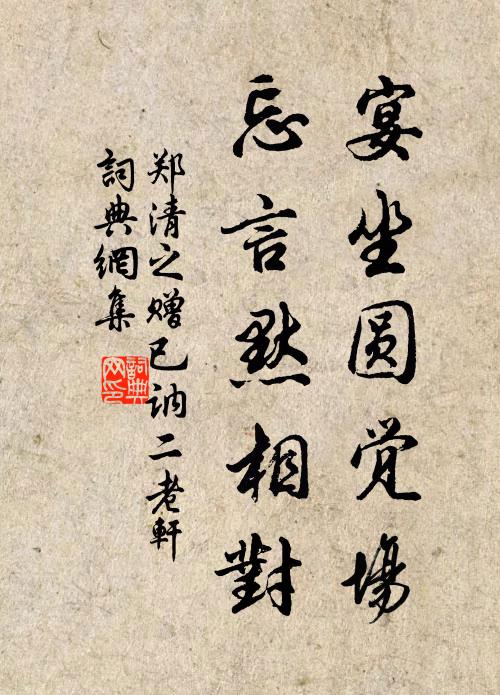 宴坐圆觉場
忘言黙相對
郑清之赠已讷二老軒
詞典網集
詞典网印